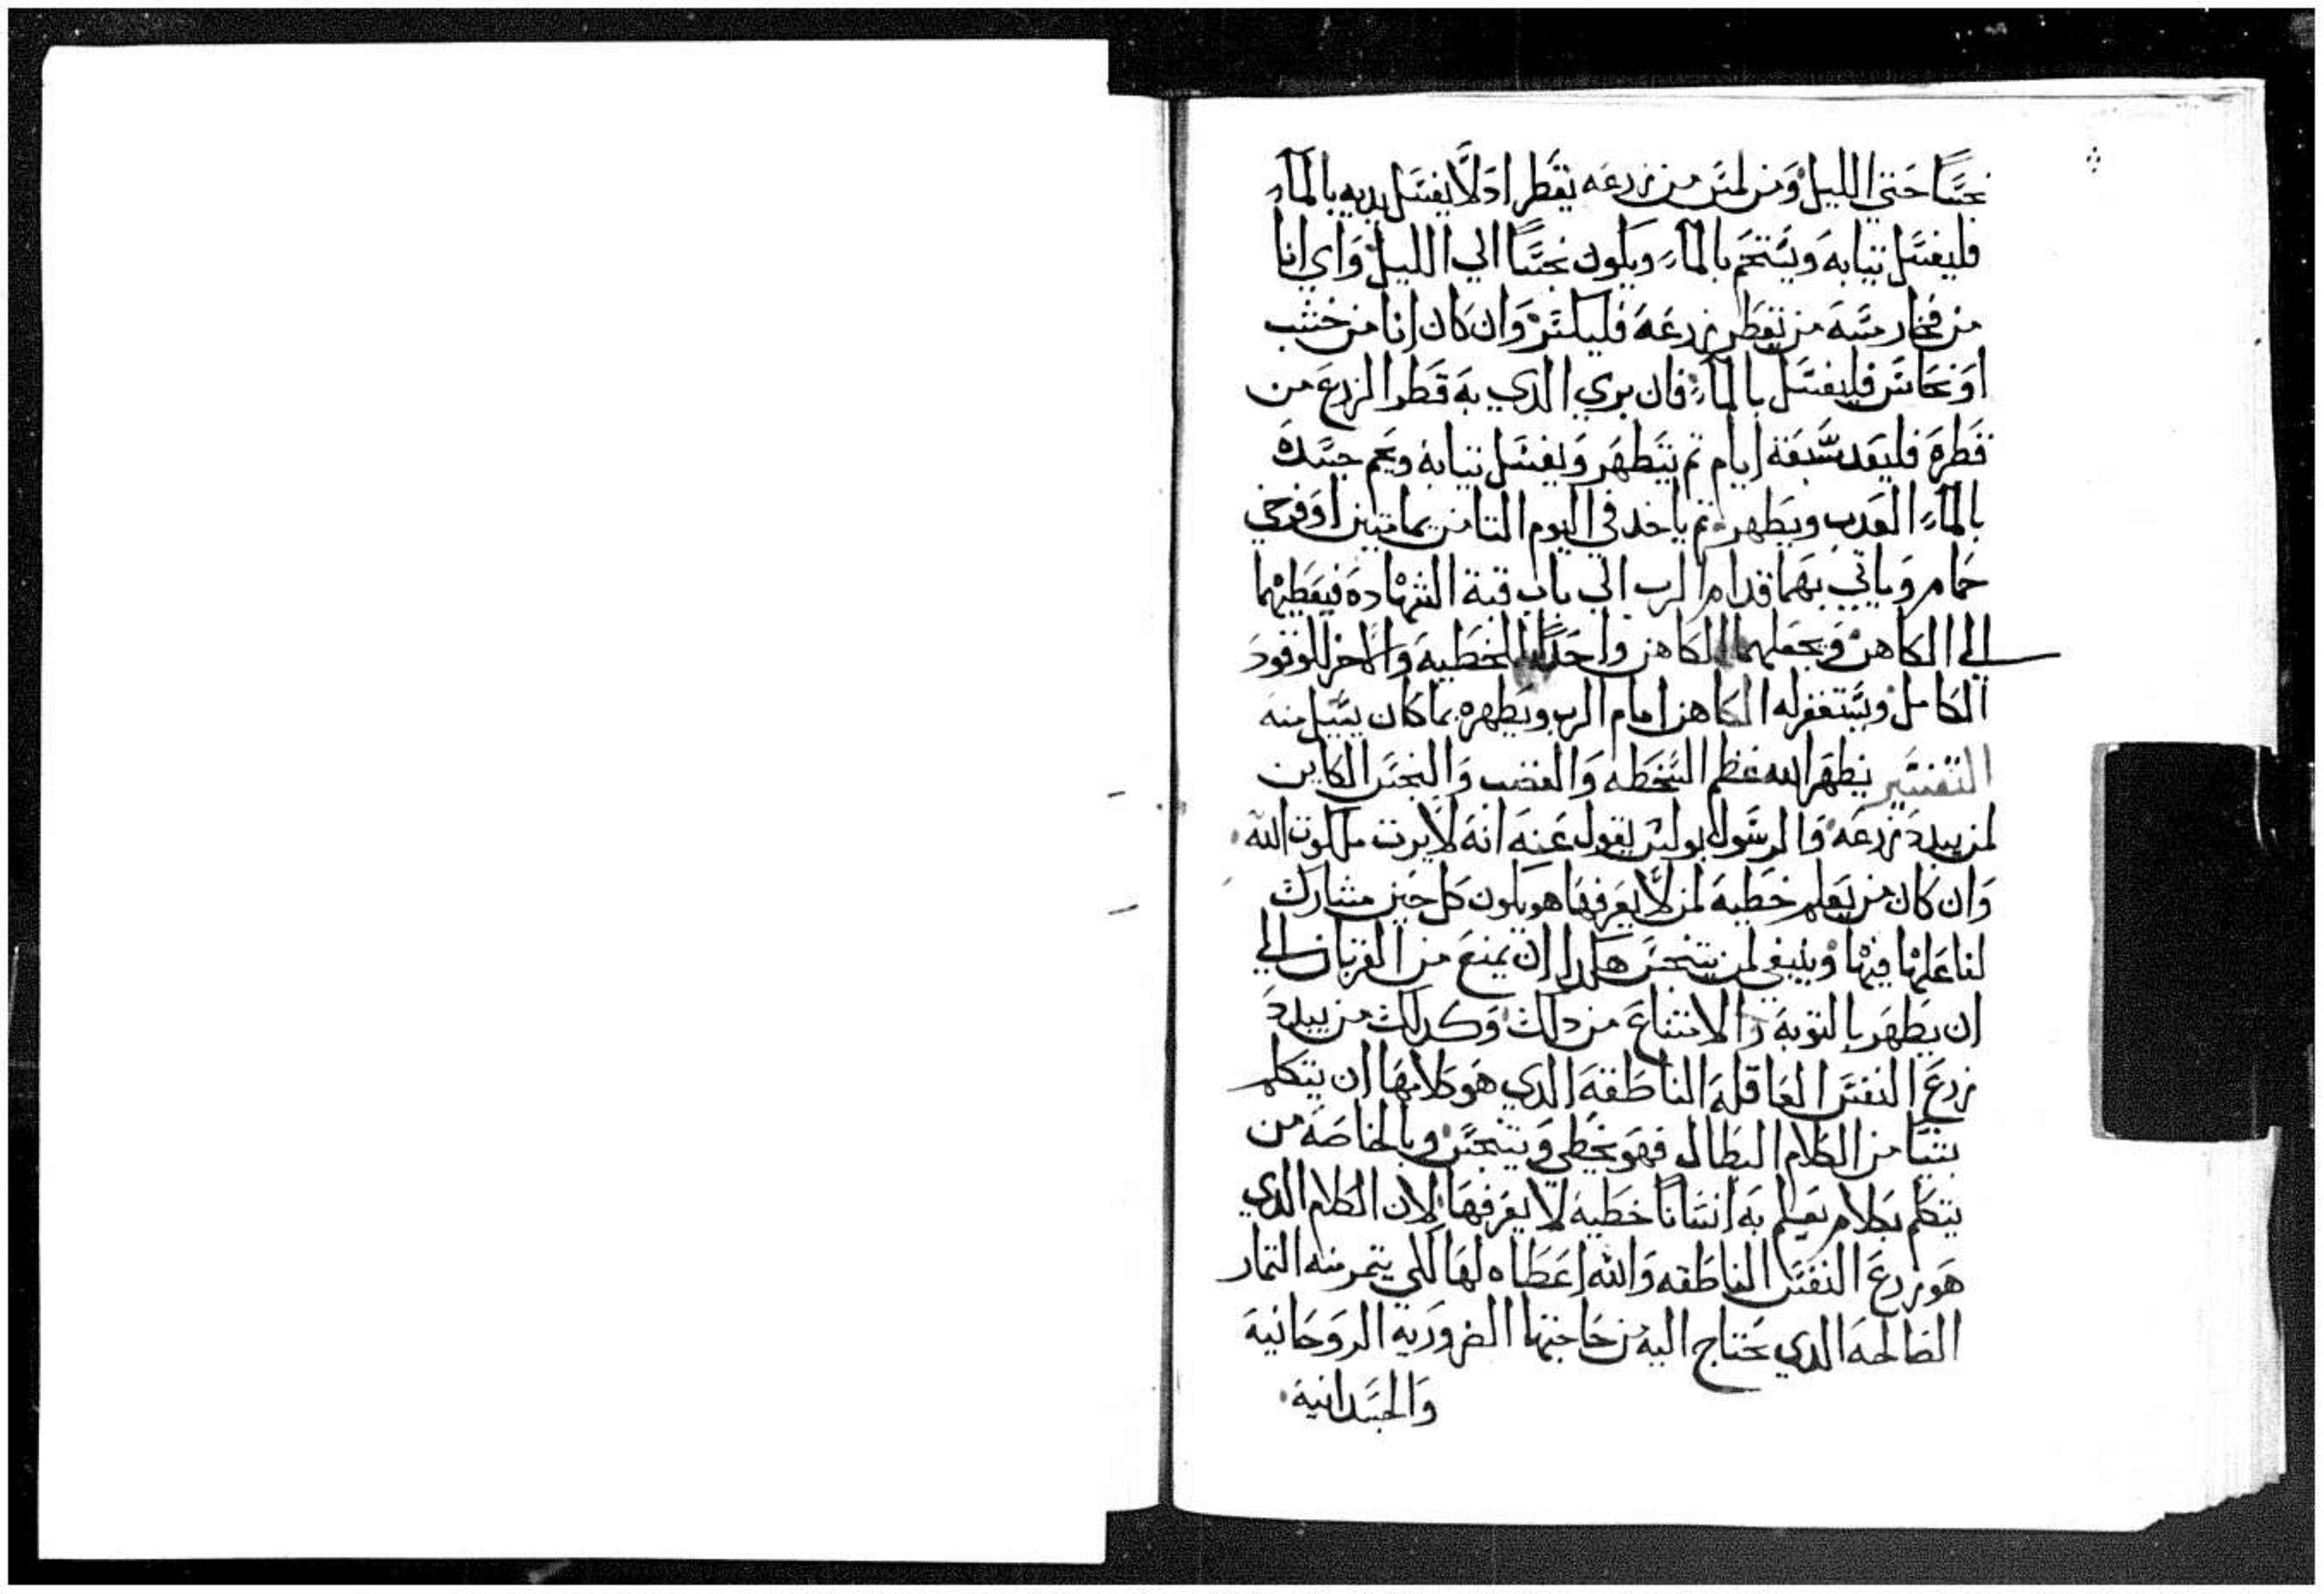 نجسًا حتي الليل ومن لمس من زرعه يقطر اد لا يغسل يديه بالمآء
فليغسل تيابه ويستحم بالمآء ويكون نجسًا الي الليل واي انا
من فخار مسه من يقطر زرعه فليكسر وان كان انا من خشب
او نحاس فليغسل بالمآء فان بري الدي به قطر الزرع من
قطره فليعد سبعة ايام تم يتطهر ويغسل تيابه ويحم جسده
بالمآء العدب ويطهر تم ياخد في اليوم التامن يمامتين او فرخي
حمام وياتي بهما قدام الرب الي باب قبة الشهاده فيعطيهما
الي الكاهن ويجعلهما الكاهن واحدًا للخطيه والاخر للوقود
الكامل ويستغفر له الكاهن امام الرب ويطهره بما كان يسيل منه
التفسير يظهر الله عظم السخطه والغضب والنجس الكاين
لمن يبدد زرعه والرسول بولس يقول عنه انه لا يرت ملكوت الله
وان كان من يعلم خطيه لمن لا يعرفها هو يكون كل حين مشارك
لفاعلها فيها وينبغي لمن يتنجس هكدا ان يمنع من القربان الي
ان يطهر بالتوبه والامتناع من دلك وكدلك من يبدد
زرع النفس العاقله الناطقه الدي هو كلامها ان يتكلم
بشيا من الكلام البطال فهو يخطي ويتنجس وبالخاصه من
يتكلم بكلام يعلم به انسانًا خطيه لا يعرفها لان الكلام الدي
هو زرع النفس الناطقه والله اعطاه لها لكي يتمر منه التمار
الصالحه الدي تحتاج اليه من حاجتها الضروريه الروحانيه
والجسدانيه